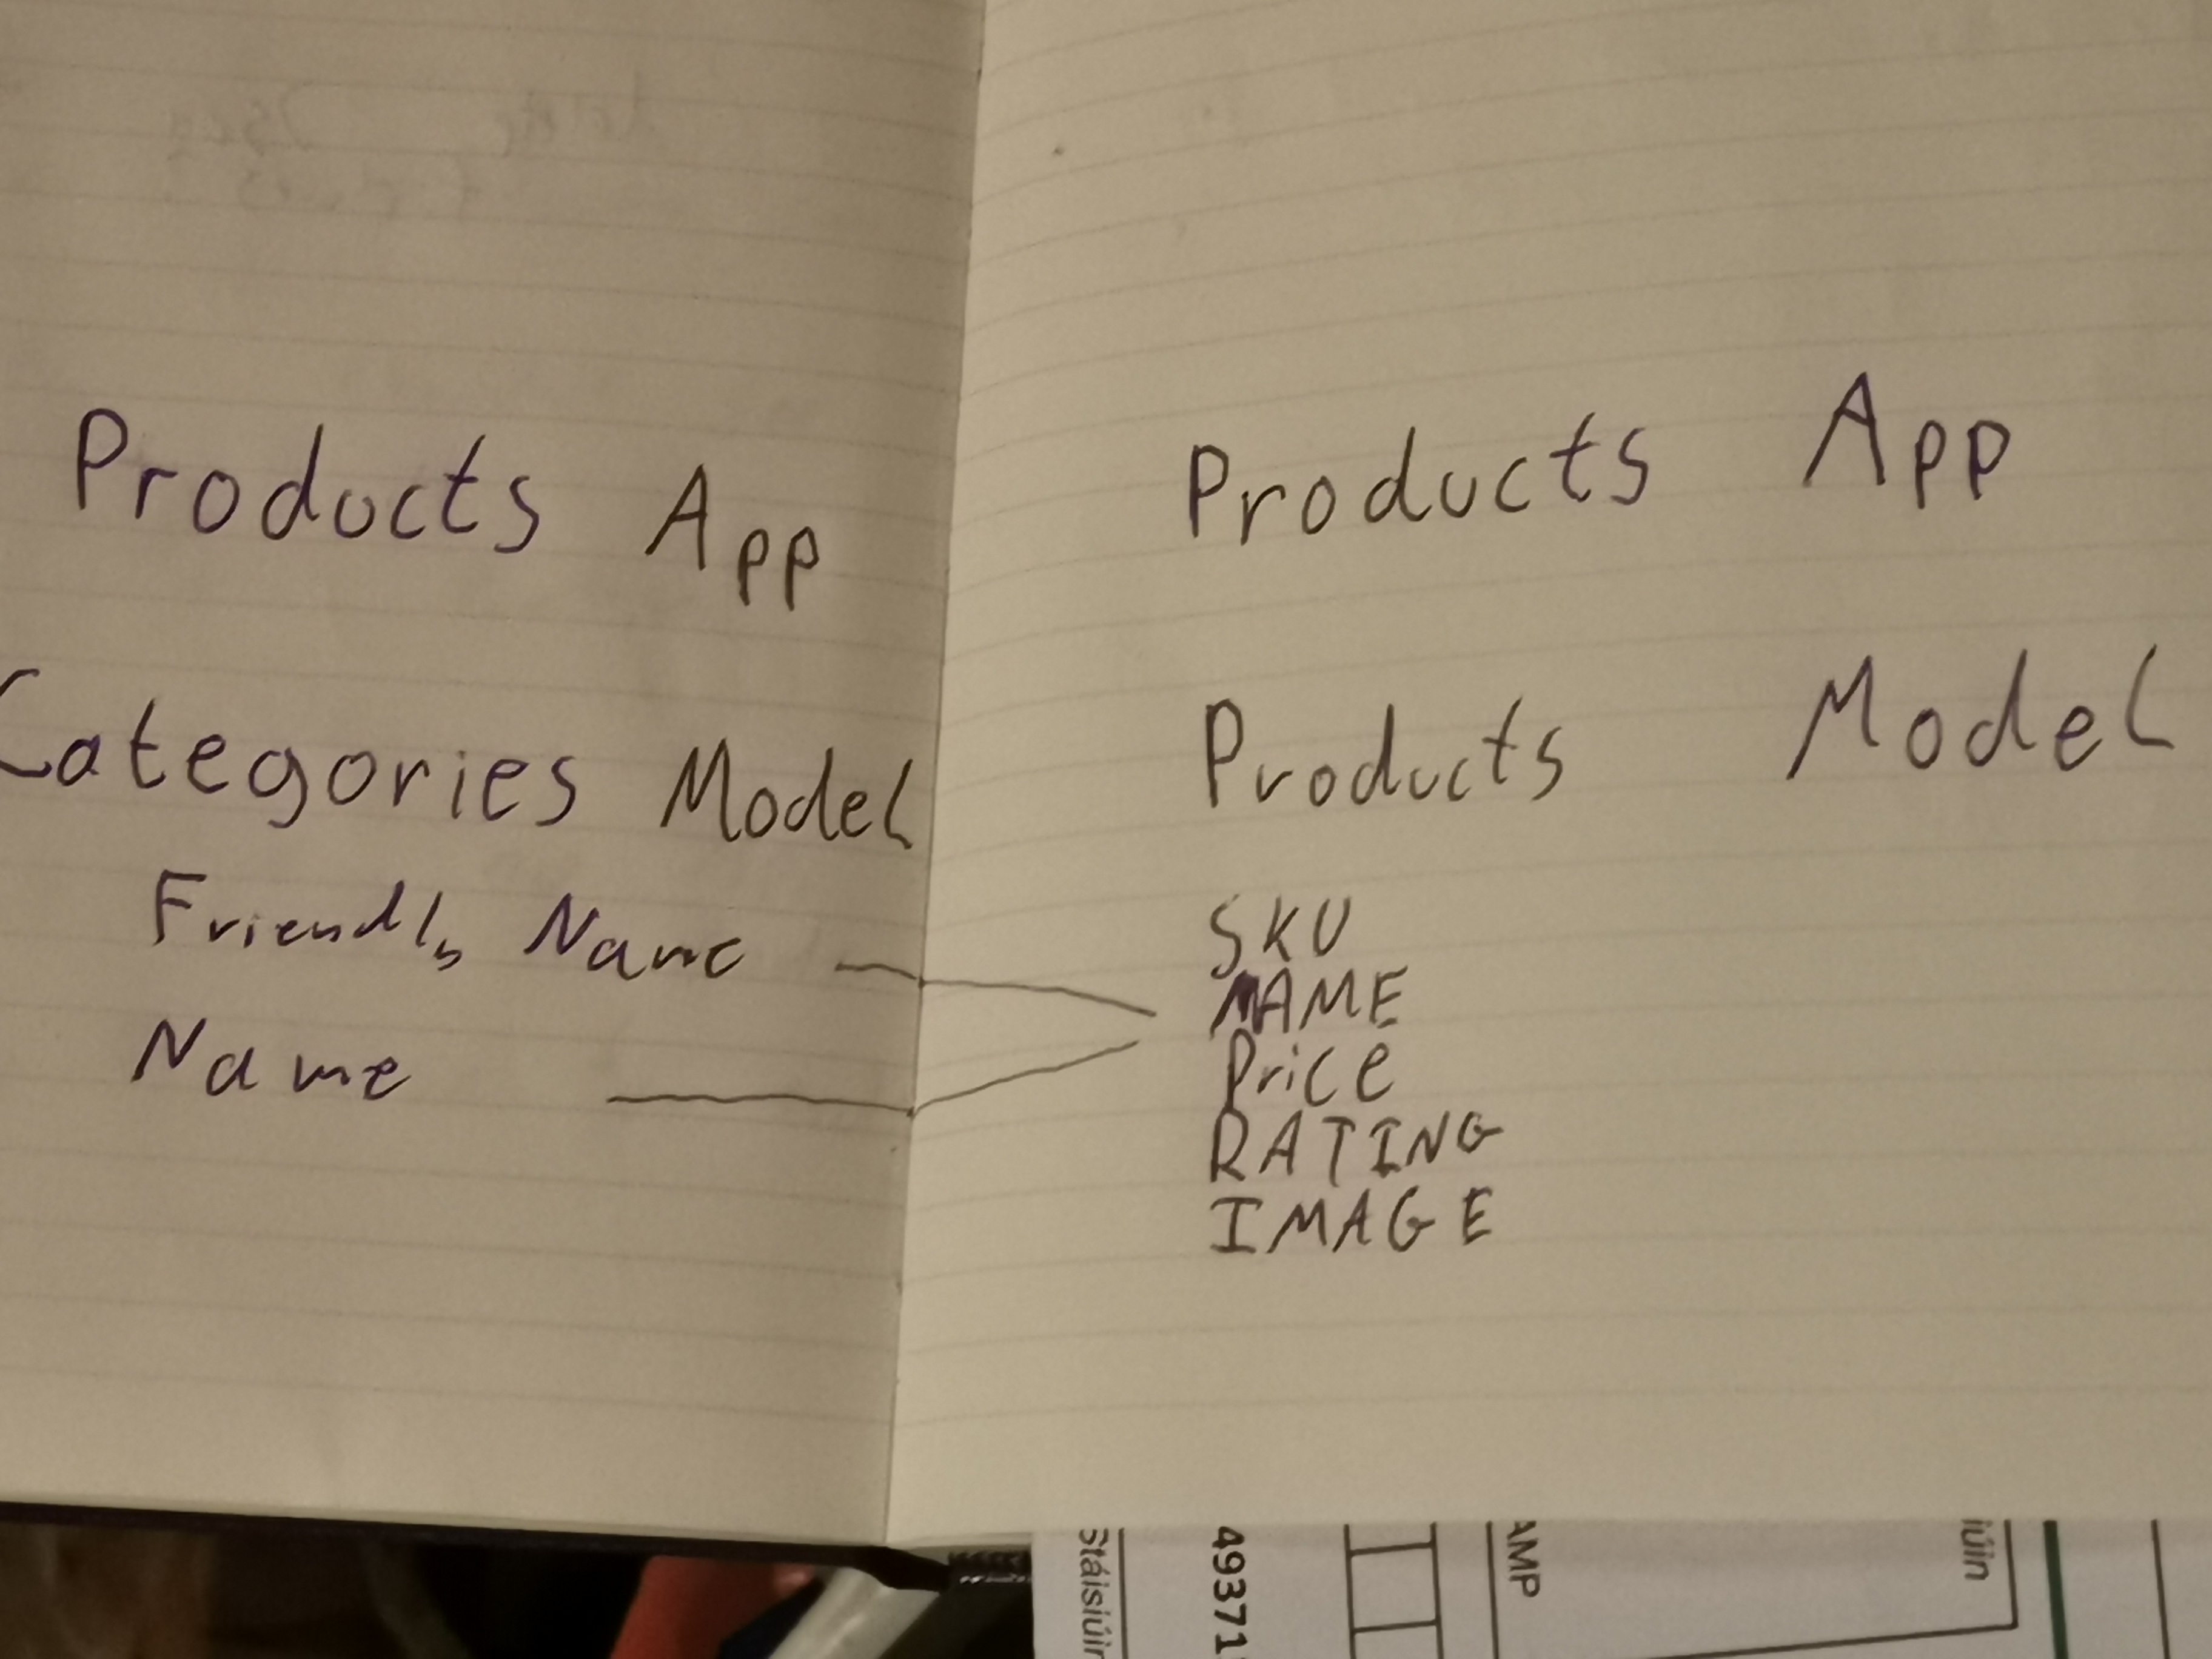 Products App
Categories Model
Friendly Name
Name
Products App
Products Model
SKU
NAME
Price
RATING
IMAGE
Stáisiúin
49371
AMP
iúin